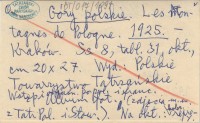 Góry polskie. Les Mon-
tagnes de Pologne. 1925.—
Kraków. Ss 8, tabl. 31, okł,
cm 20 x 27. Wyd. Polskie
Towarzystwo Tatrzańskie
Wstęp i pol. i franc.
Album fot. (zdjęcia
z Tat. Pol. i Słow.). Na okł.: